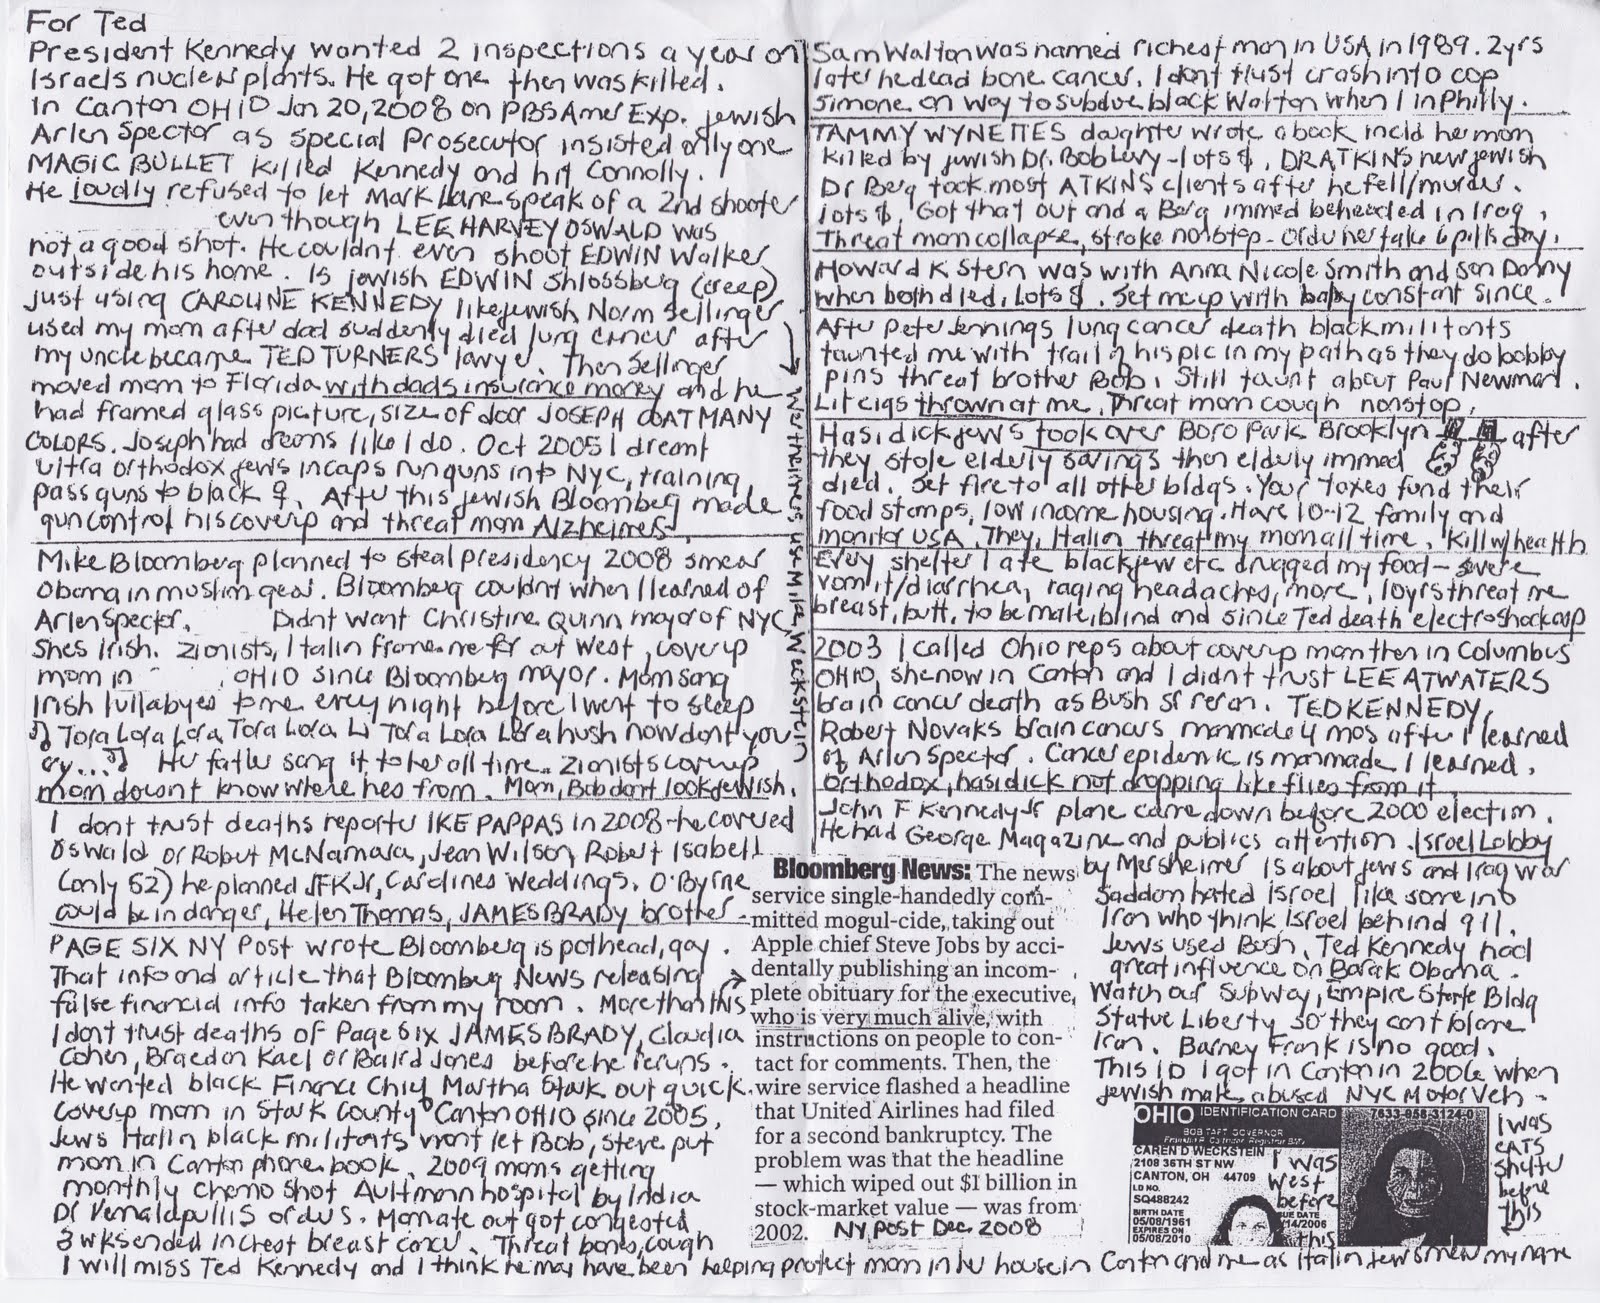 For Ted
President Kennedy wanted 2 inspections a year on
Israels nuclear plants. He got one then was killed.
In Canton OHIO Jan 20, 2008 on PBS Amer Exp. jewish
Arlen Spector as special Prosecutor insisted only one
MAGIC BULLET killed Kennedy and hit Connolly.
He loudly refused to let Mark Lane speak of a 2nd shooter
even though LEE HARVEY OSWALD was
not a good shot. He couldnt even shoot EDWIN Walker
outside his home. Is jewish EDWIN Shlossberg (creep)
just using CAROLINE KENNEDY like jewish Norm Sellinger
used my mom after dad suddenly died lung cancer after
my uncle became TED TURNERS lawyer. Then Sellinger
moved mom to Florida with dads insurance money and he
had framed glass picture, size of door JOSEPH COAT MANY
COLORS. Joseph had dreams like I do. Oct 2005 I dreamt
ultra orthodox jews in caps run guns into NYC, training
pass guns to black ♀. After this jewish Bloomberg made
gun control his coverup and threat mom Alzheimers.
Mike Bloomberg planned to steal presidency 2008 smear
Obama in muslim gear. Bloomberg couldnt when I learned of
Arlen Spector. Didnt want Christine Quinn mayor of NYC
Shes Irish. Zionists, Italin frame me for out West, coverup
mom in OHIO since Bloomberg mayor. Mom sang
Irish lullabyes to me every night before I went to sleep
♫ Tora Lora Lora, Tora Lora Li Tora Lora Lora hush now dont you
cry...♫ Her father sang it to her all time. Zionists coverup
mom doesnt know where hes from. Mom, Bob dont look jewish.
I dont trust deaths reporter IKE PAPPAS in 2008-he covered
Oswald or Robert McNamara, Jean Wilson, Robert Isabell
(only 52) he planned JFK Jr, Carolines weddings. O'Byrne
could be in danger, Helen Thomas, JAMES BRADY brother.
PAGE SIX NY Post wrote Bloomberg is pothead, gay.
That info and article that Bloomberg News releasing →
false financial info taken from my room. More than this
I dont trust deaths of Page Six JAMES BRADY, Claudia
Cohen, Braedon Kael or Baird Jones before he reruns.
He wanted black Finance Chief Martha Stark out quick.
coverup mom in Stark County Canton OHIO since 2005.
Jews Italin black militants wont let Bob, Steve put
mom in Canton phone book. 2009 moms getting
monthly chemo shot Aultmann hospital by India
Dr Vemalapullis orders. Mom ate out got congested
3 wks ended in crest breast cancer. Threat bones, cough
War theives use Mike, Weckstein
Sam Walton was named richest man in USA in 1989. 2yrs
later he dead bone cancer. I dont trust crash into cop
Simone on way to subdue black Walton when I in Philly.
TAMMY WYNETTES daughter wrote a book incld her mom
killed by jewish Dr. Bob Levy - lots $. DR ATKINS new jewish
Dr Berg took most ATKINS clients after he fell/murder.
lots $. Got that out and a Berg immed beheaded in Iraq.
Threat mom collapse, stroke nonstop - Order her take 6 pills day.
Howard K Stern was with Anna Nicole Smith and son Danny
when both died, Lots $. Set me up with baby constant since.
After Peter Jennings lung cancer death black militants
taunted me with trail of his pic in my path as they do bobby
pins threat brother Bob. Still taunt about Paul Newman.
Lit cigs thrown at me. Threat mom cough nonstop.
Hasidick jews took over Boro Park Brooklyn after
they stole elderly savings then elderly immed
died. Set fire to all other bldgs. Your taxes fund their
food stamps, low income housing. Have 10-12 family and
monitor USA. They, Italin threat my mom all time. 'Kill w/ health
Every shelter I ate black jew etc drugged my food - severe
vomit/diarrhea, raging headaches, more. 10yrs threat me
breast, butt, to be male, blind and since Ted death electroshock
2003 I called Ohio reps about coverup mom then in Columbus
OHIO, she now in Canton and I didnt trust LEE ATWATERS
brain cancer death as Bush Sr reran. TED KENNEDY,
Robert Novaks brain cancers manmade 4 mos after I learned
of Arlen Spector. Cancer epidemic is manmade I learned.
Orthodox, hasidick not dropping like flies from it.
John F Kennedy Jr plane came down before 2000 election.
He had George Magazine and publics attention. Israel Lobby
by Mersheimer is about jews and Iraq war
Saddam hated Israel like some in
Iran who think Israel behind 911.
Jews used Bush, Ted Kennedy had
great influence on Barak Obama.
Watch our Subway, Empire State Bldg
Statue Liberty so they cant blame
Iran. Barney Frank is no good.
This ID I got in Canton in 2006 when
jewish male abused NYC Motor Veh -
Bloomberg News: The news
service single-handedly com-
mitted mogul-cide, taking out
Apple chief Steve Jobs by acci-
dentally publishing an incom-
plete obituary for the executive,
who is very much alive, with
instructions on people to con-
tact for comments. Then, the
wire service flashed a headline
that United Airlines had filed
for a second bankruptcy. The
problem was that the headline
— which wiped out $1 billion in
stock-market value — was from
2002. NY post Dec 2008
OHIO IDENTIFICATION CARD
BOB TAFT GOVERNOR
CAREN D WECKSTEIN
2108 36TH ST NW
CANTON, OH 44709
LD NO.
SQ488242
BIRTH DATE
05/08/1961
EXPIRES ON
05/08/2010
ISSUE DATE
/14/2006
7633-958-3124-0
I was
West
before
this
I was
EATS
Shelter
before
this
I will miss Ted Kennedy and I think he may have been helping protect mom in her house in Canton and me as Italin jews new my name